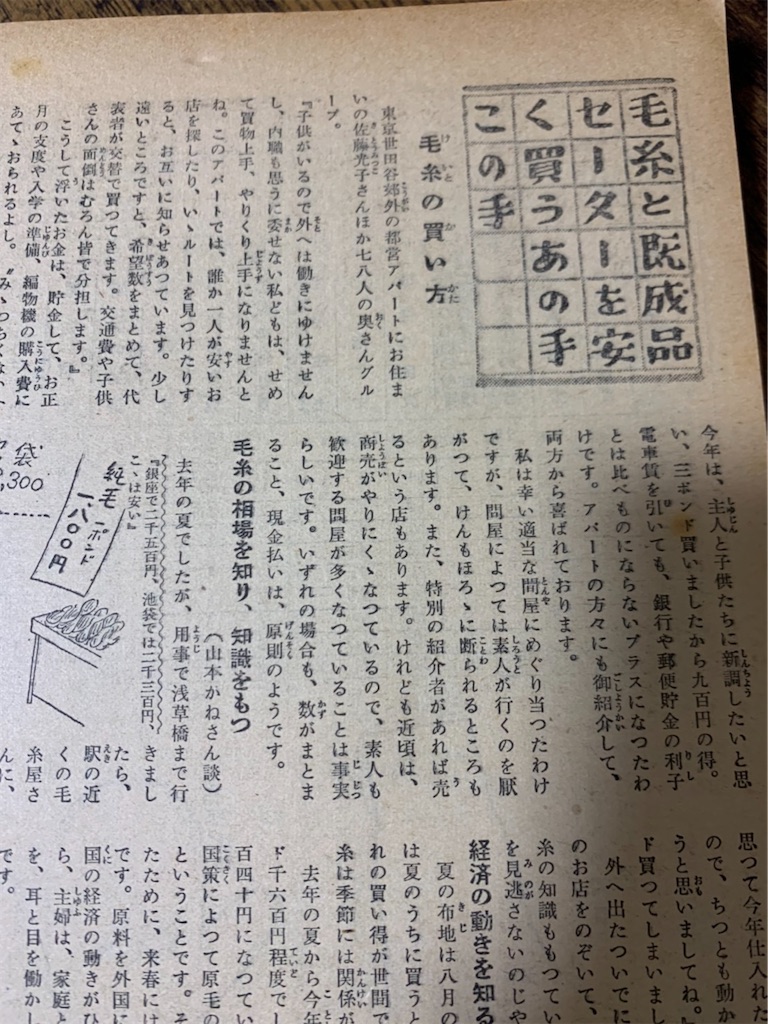 毛糸と既成品
セーターを安
く買うあの手
この手
毛糸の買い方
東京世田谷郊外の都営アパートにお住ま
いの佐藤光子さんほか七八人の奥さんグル
ープ。
『子供がいるので外へは働きにゆけません
し、内職も思うに委せない私どもは、せめ
て買物上手、やりくり上手になりませんと
ね。このアパートでは、誰か一人が安いお
店を探したり、いゝルートを見つけたりす
ると、お互いに知らせあつています。少し
遠いところですと、希望数をまとめて、代
表者が交替で買つてきます。交通費や子供
さんの面倒はむろん皆で分担します。』
こうして浮いたお金は、貯金して、お正
月の支度や入学の準備、編物機の購入費に
あてゝおられるよし。
今年は、主人と子供たちに新調したいと思
い、三ポンド買いましたから九百円の得。
電車賃を引いても、銀行や郵便貯金の利子
とは比べものにならないプラスになつたわ
けです。アパートの方々にも御紹介して、
両方から喜ばれております。
私は幸い適当な問屋にめぐり当つたわけ
ですが、問屋によつては素人が行くのを厭
がつて、けんもほろゝに断られるところも
あります。また、特別の紹介者があれば売
るという店もあります。けれども近頃は、
商売がやりにくゝなつているので、素人も
歓迎する問屋が多くなつていることは事実
らしいです。いずれの場合も、数がまとま
ること、現金払いは、原則のようです。
（山本かねさん談）
毛糸の相場を知り、知識をもつ
去年の夏でしたが、用事で浅草橋まで行
きまし
たら、
駅の近
くの毛
糸屋さ
んに、
『銀座で二千五百円、池袋では二千三百円、
こゝは安い』
純毛
一ポンド
一八〇〇円
袋
300
思つて今年仕入れた
ので、ちつとも動か
うと思いましてね。
ド買つてしまいまし
外へ出たついでに
のお店をのぞいて、
糸の知識ももつてい
を見逃さないのじや
経済の動きを知る
夏の布地は八月の
は夏のうちに買うと
れの買い得が世間で
糸は季節には関係が
去年の夏から今年
ド千六百円程度でし
百四十円になつてい
国策によつて原毛の
ということです。そ
たために、来春には
です。原料を外国に
国の経済の動きがひ
ら、主婦は、家庭と
を、耳と目を働かし
です。